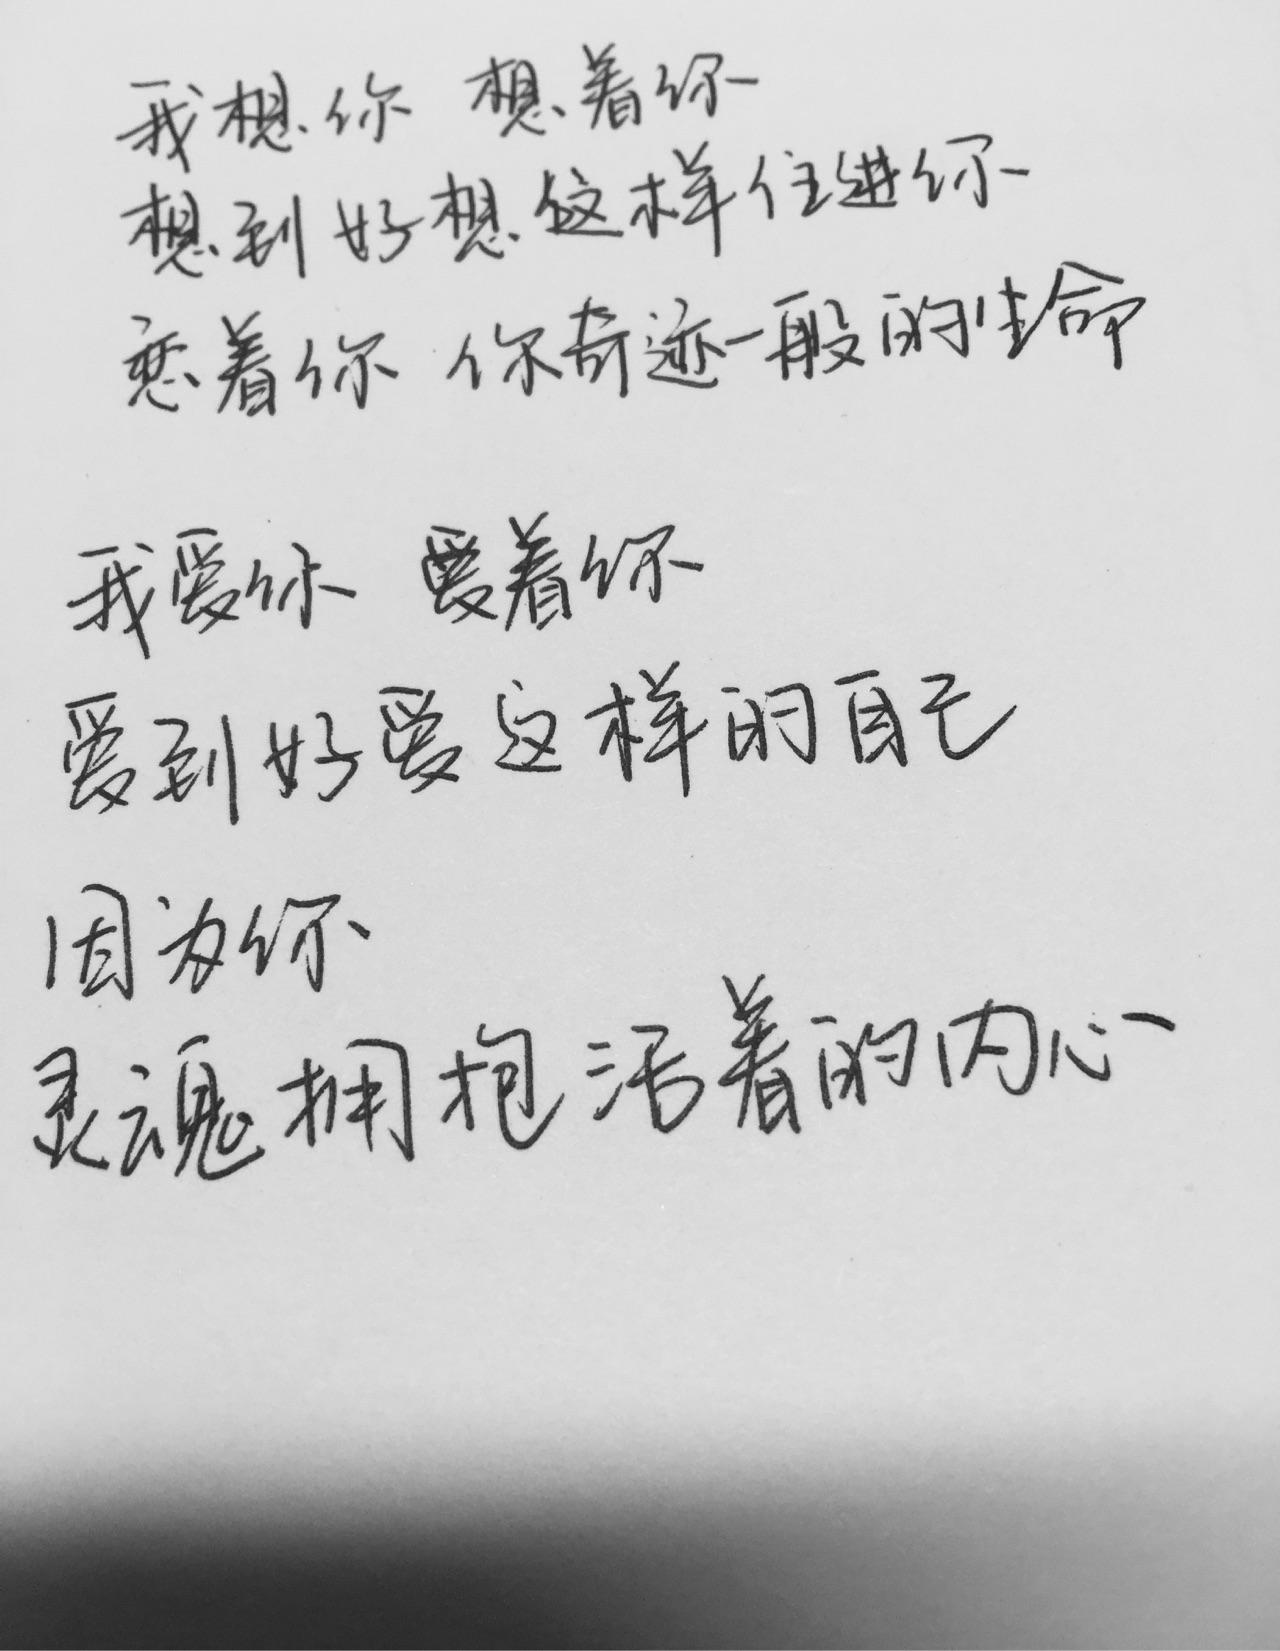 我想你 想着你
想到好想这样住进你
恋着你 你奇迹一般的生命
我爱你 爱着你
爱到好爱这样的自己
因为你
灵魂拥抱活着的内心